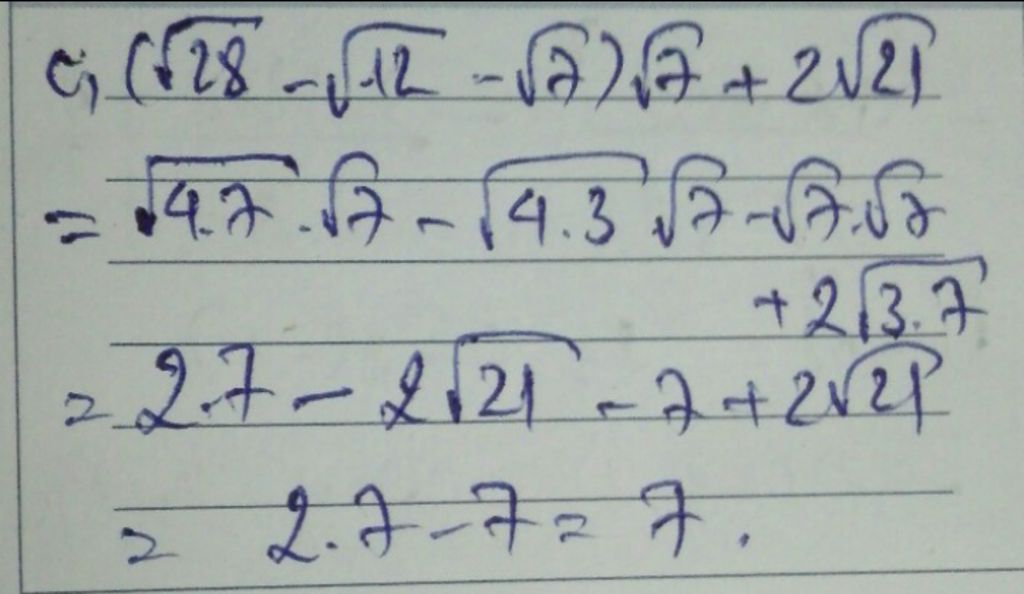 c, (√28 - √12 - √7)√7 + 2√21
= √4.7 . √7 - √4.3 √7 - √7.√7
+ 2√3.7
= 2.7 - 2√21 - 7 + 2√21
= 2.7 - 7 = 7.